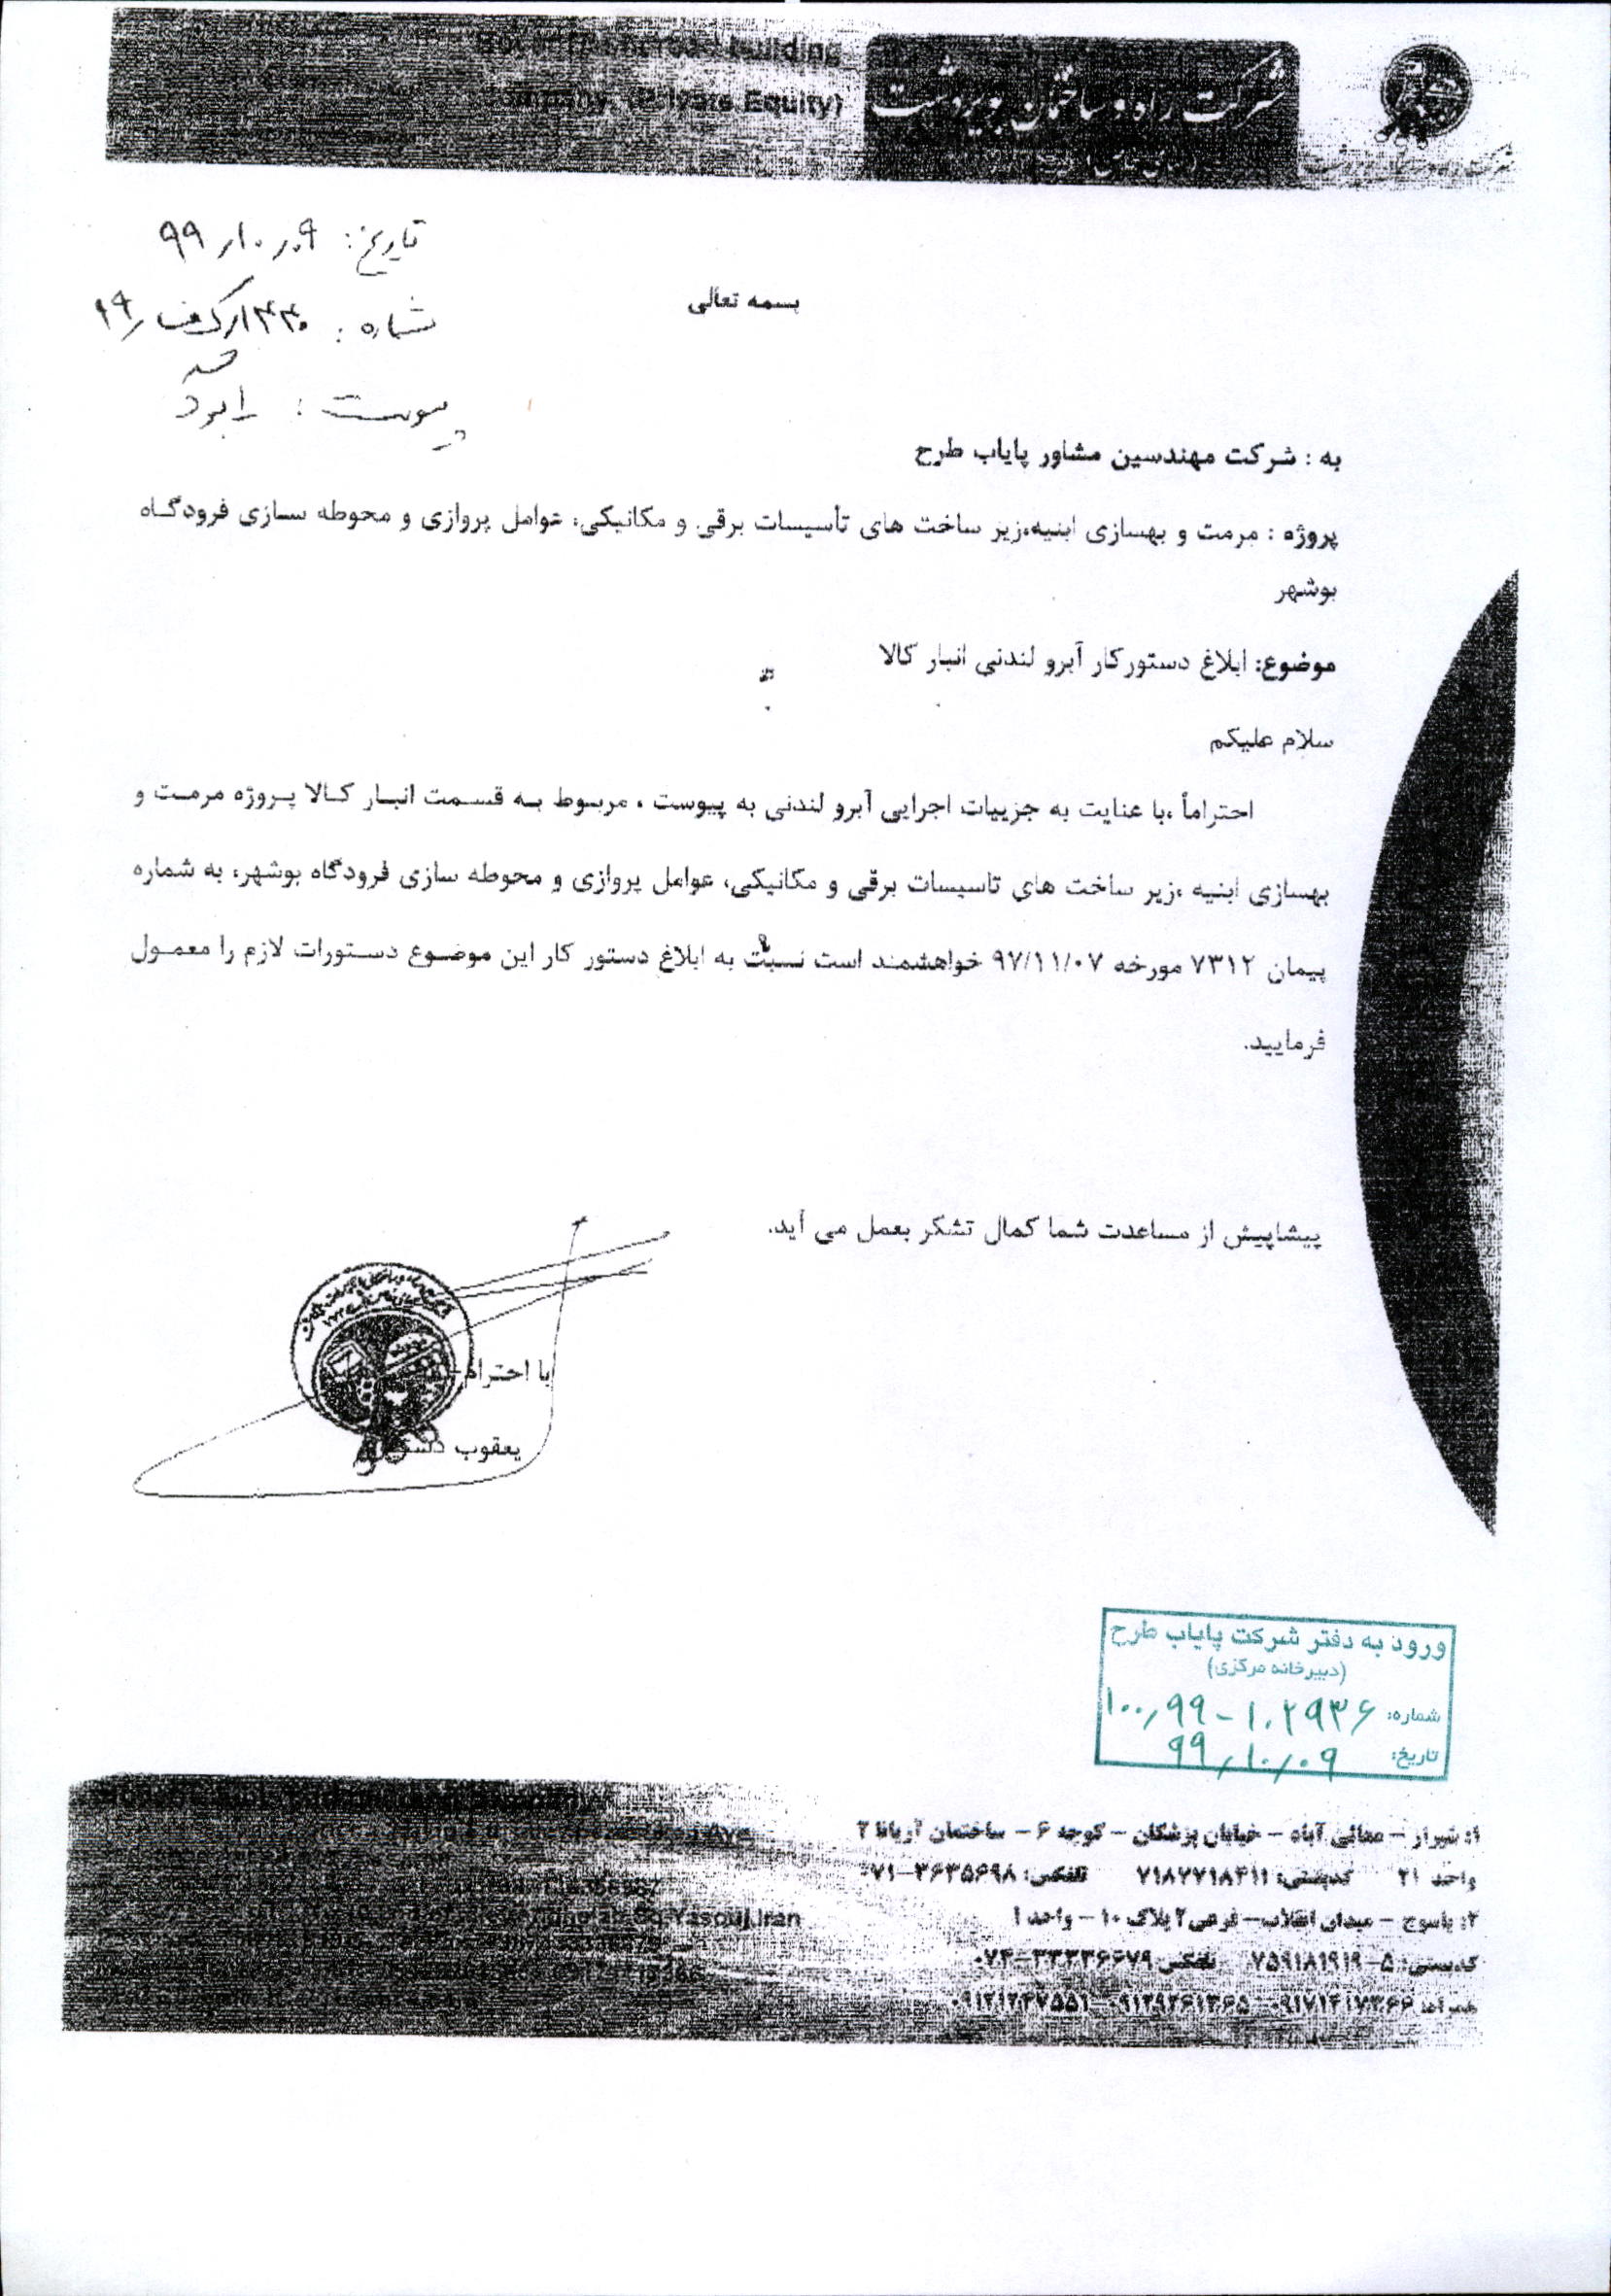 Building
Company (Private Equity)
شرکت راه و ساختمان بویردشت
تاریخ: ۹۹/۱۰/۰۹
شماره:
پیوست: دارد
بسمه تعالی
به : شرکت مهندسین مشاور پایاب طرح
پروژه : مرمت و بهسازی ابنیه،زیر ساخت های تأسیسات برقی و مکانیکی، عوامل پروازی و محوطه سازی فرودگاه
بوشهر
موضوع: ابلاغ دستورکار آبرو لندنی انبار کالا
سلام علیکم
احتراماً ،با عنایت به جزییات اجرایی آبرو لندنی به پیوست ، مربوط به قسمت انبار کالا پروژه مرمت و
بهسازی ابنیه ،زیر ساخت های تاسیسات برقی و مکانیکی، عوامل پروازی و محوطه سازی فرودگاه بوشهر، به شماره
پیمان ۷۳۱۲ مورخه ۹۷/۱۱/۰۷ خواهشمند است نسبت به ابلاغ دستور کار این موضوع دستورات لازم را معمول
فرمایید.
پیشاپیش از مساعدت شما کمال تشکر بعمل می آید.
با احترام
یعقوب
ورود به دفتر شرکت پایاب طرح
(دبیرخانه مرکزی)
شماره: ۱۰۰/۹۹-۱۰۲۹۳۶
تاریخ: ۹۹/۱۰/۰۹
۱: شیراز – معالی آباد – خیابان پزشکان – کوچه ۶ – ساختمان آریانا ۲
واحد ۲۱ کدپستی: ۷۱۸۷۷۱۸۴۱۱ تلفکس: ۳۶۳۵۶۹۸–۰۷۱
۲: یاسوج – میدان انقلاب– فرعی ۲ پلاک ۱۰ – واحد ۱
کدپستی: ۵–۷۵۹۱۸۱۹۱۹ تلفکس ۳۳۳۳۶۶۷۹–۰۷۴
همراه:
Yasouj,Iran